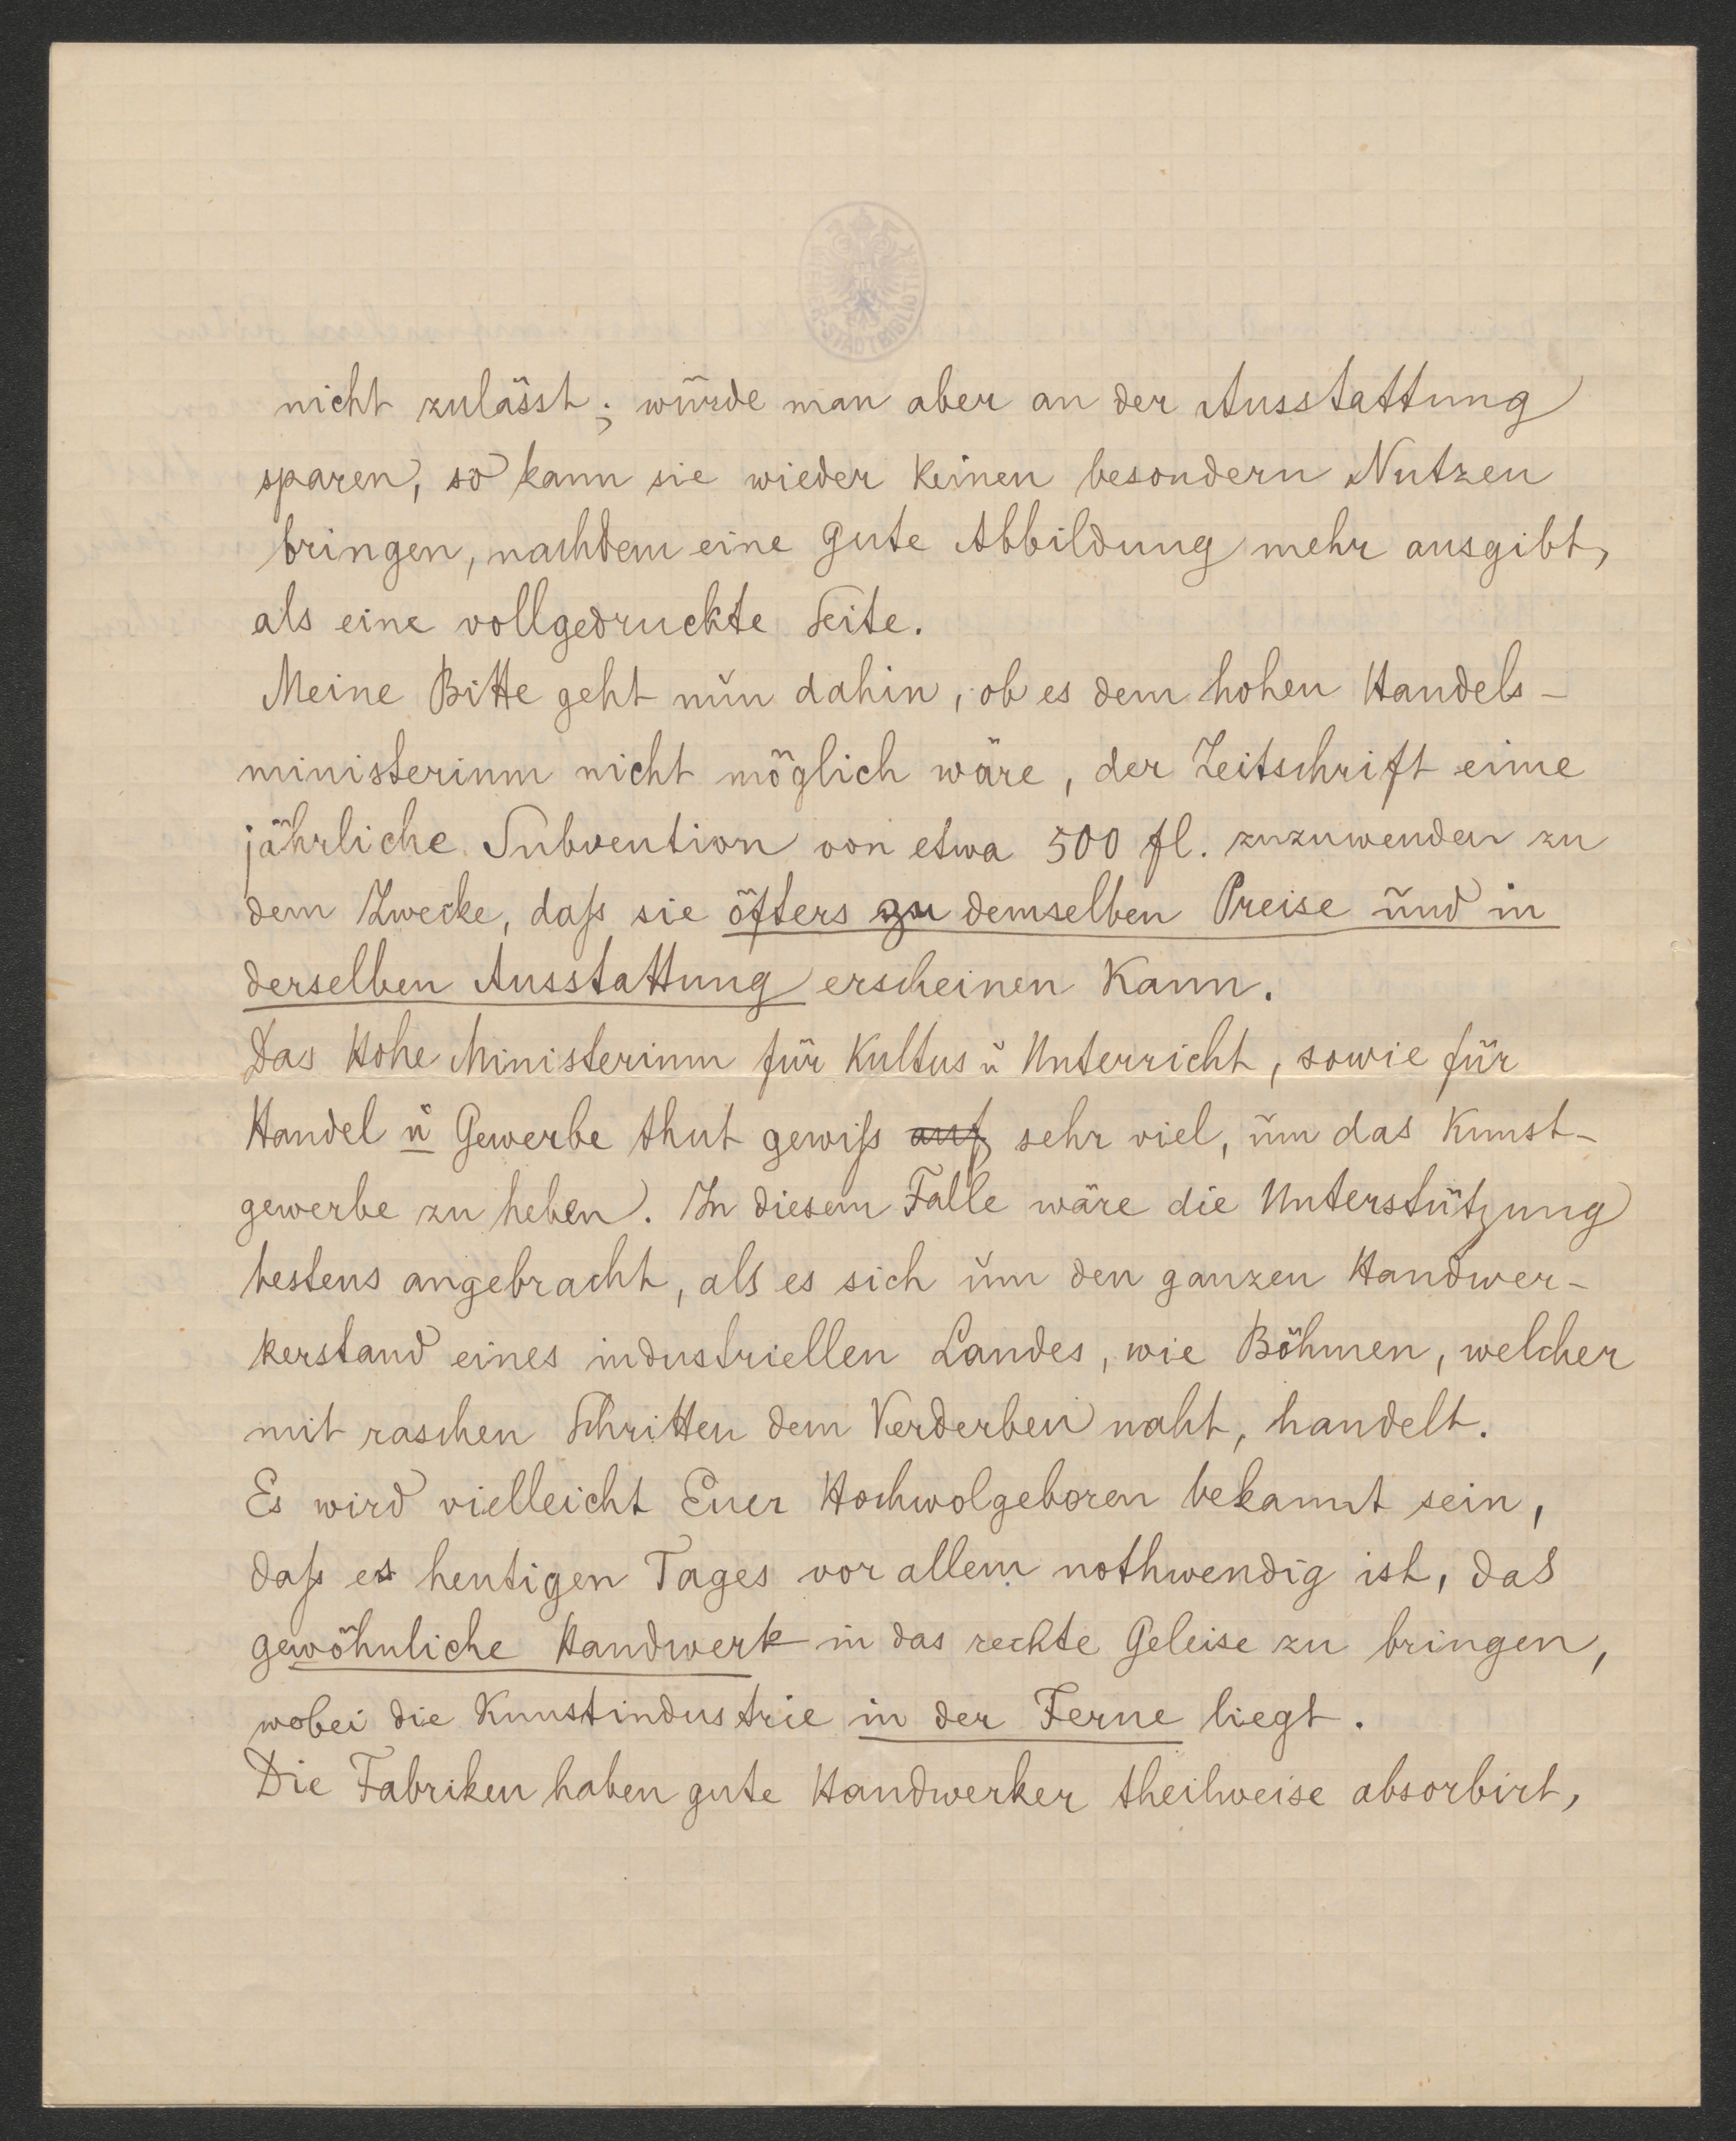 nicht zulässt; würde man aber an der Ausstattung
sparen, so kann sie wieder keinen besondern Nutzen
bringen, nachdem eine gute Abbildung mehr ausgibt,
als eine vollgedruckte Seite.
Meine Bitte geht nun dahin, ob es dem hohen Handels-
ministerium nicht möglich wäre, der Zeitschrift eine
jährliche Subvention von etwa 500 fl. zuzuwenden zu
dem Zwecke, daß sie öfters zu demselben Preise und in
derselben Ausstattung erscheinen kann.
Das Hohe Ministerium für Kultus u Unterricht, sowie für
Handel u Gewerbe thut gewiß auf sehr viel, um das Kunst-
gewerbe zu heben. In diesem Falle wäre die Unterstützung
bestens angebracht, als es sich um den ganzen Handwer-
kerstand eines industriellen Landes, wie Böhmen, welcher
mit raschen Schritten dem Verderben naht, handelt.
Es wird vielleicht Euer Hochwolgeboren bekannt sein,
daß es heutigen Tages vor allem nothwendig ist, das
gewöhnliche Handwerk in das rechte Geleise zu bringen,
wobei die Kunstindustrie in der Ferne liegt.
Die Fabriken haben gute Handwerker theilweise absorbirt,